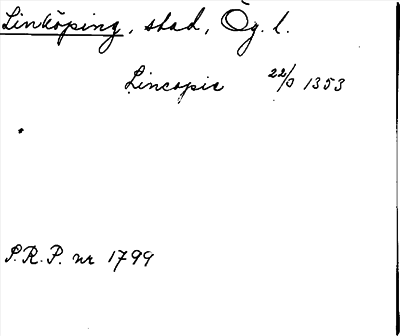 Linköping, stad, Ög. l.
Lincopie 22/5 1353
P.R.P. nr 1799